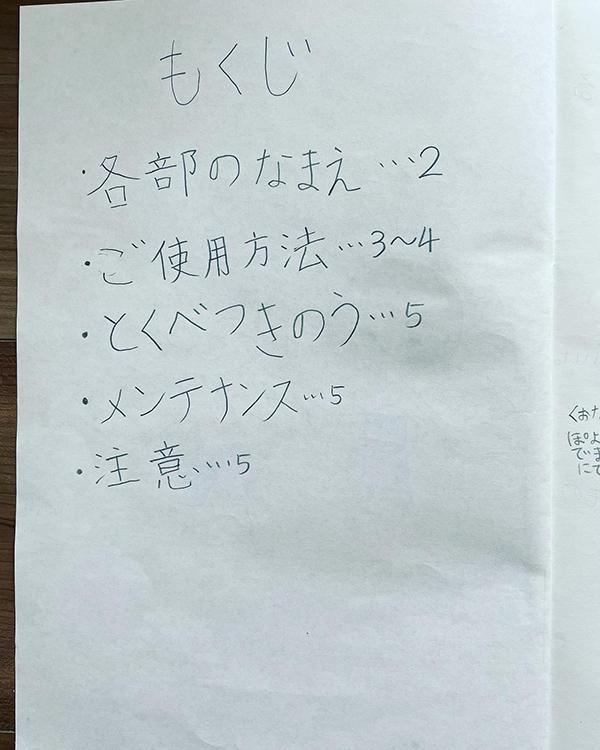 もくじ
・各部のなまえ…2
・ご使用方法…3〜4
・とくべつきのう…5
・メンテナンス…5
・注意…5
くおた
ぽよ
でま
にて